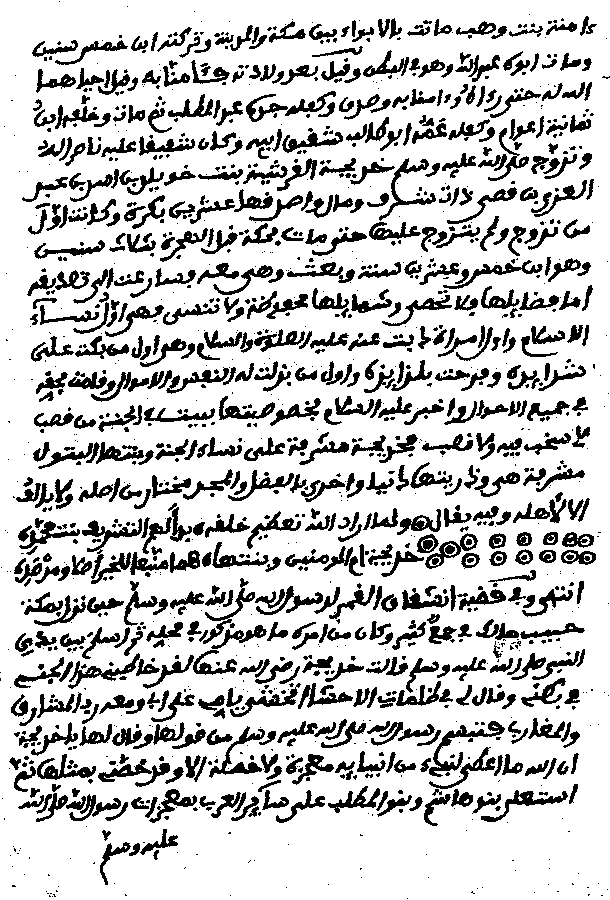 ءامنة بنت وهب ماتت بالابواء بين مكة والمدينة وتركته ابن خمس سنين
ومات ابوه عبد الله وهو في البطن وقيل بعد ولادته وقيل احياهما
الله له حتى وءامنا به وكفله جده عبد المطلب ثم مات وخلفه ابن
ثمانية اعوام وكفله عمه ابو طالب شقيق ابيه وكان شفيقا عليه ناصرا له
وتزوج صلى الله عليه وسلم خديجة القرشية بنت خويلد بن اسد بن عبد
العزى بن قصي ذات شرف ومال واصدقها عشرين بكرة وكانت اول
من تزوج ولم يتزوج عليها حتى ماتت بمكة قبل الهجرة بثلاث سنين
وهو ابن خمس وعشرين سنة وبعث وهي معه وسارعت الى تصديقه
اما فضايلها ولا تحصى وشمايلها محفوظة ولا تنسى وهي اول نساء
الاسلام واول امراة ءامنت عنه عليه الصلاة والسلام وهي اول من بكت على
شدايده وفرحت واول من بذلت له النفس والاموال وقامت بحقه
في جميع الاحوال واخبر عليه السلام بخصوصيتها ببيت في الجنة من قصب
لا صخب فيه ولا نصب فخديجة مشرفة على نساء الجنة وبنتها البتول
مشرفة هي وذريتها بالفضل والمجد مختار من اصله ولا يالف
الا لاهله وفيه يقال ولما اراد الله تعظيم خلفه
خديجة ام المومنين وبنتها
انتهى وفي قضية انشقاق القمر لرسول الله صلى الله عليه وسلم حين نزل بمكة
حبيب بن مالك في جمع كثير وكان من امره ما هو مذكور في محله ثم اسلم بين يدي
النبي صلى الله عليه وسلم قالت خديجة رضي الله عنها لقد خاطبني هذا الجنين
في بطني وقال لي في ظلمات الاحشاء لا تخشي يا ام على ابي ومعه رب المشارق
والمغارب فتبسم رسول الله صلى الله عليه وسلم من قولها وقال لها يا خديجة
ان الله ما اعطى لنبيء من انبيايه معجزة ولا فضلة الا وقد خصني بمثلها ثم
استعلى بنو هاشم وبنو المطلب على ساير العرب بمعجزات رسول الله صلى الله
عليه وسلم